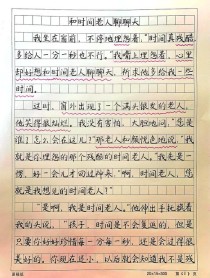 和时间老人聊聊天
我坐在窗前，不停地埋怨着，“时间真残酷
多给人一分一秒也不行。”我嘴上埋怨着，心里
却好想和时间老人聊聊天，祈求他多给我一些
时间。
这时，窗外出现了一个满头银发的老人，
他笑得很灿烂。我没有害怕，大胆地问，“您是
谁？怎么会在这儿？”那老人和颜悦色地说，“我
就是你埋怨的那个残酷的时间老人。”我老是一
愣，好一会儿才回过神来，“啊，时间老人，您
就是我想见的时间老人？”
“是啊，我是时间老人。”他伸出手轻抚着
我的头说，“孩子，时间是不会复返的，但是
只要你好好珍惜每一分每一秒，还是会过得很
美好的。你现在还小，以后就会知道我不是残
20×15=300